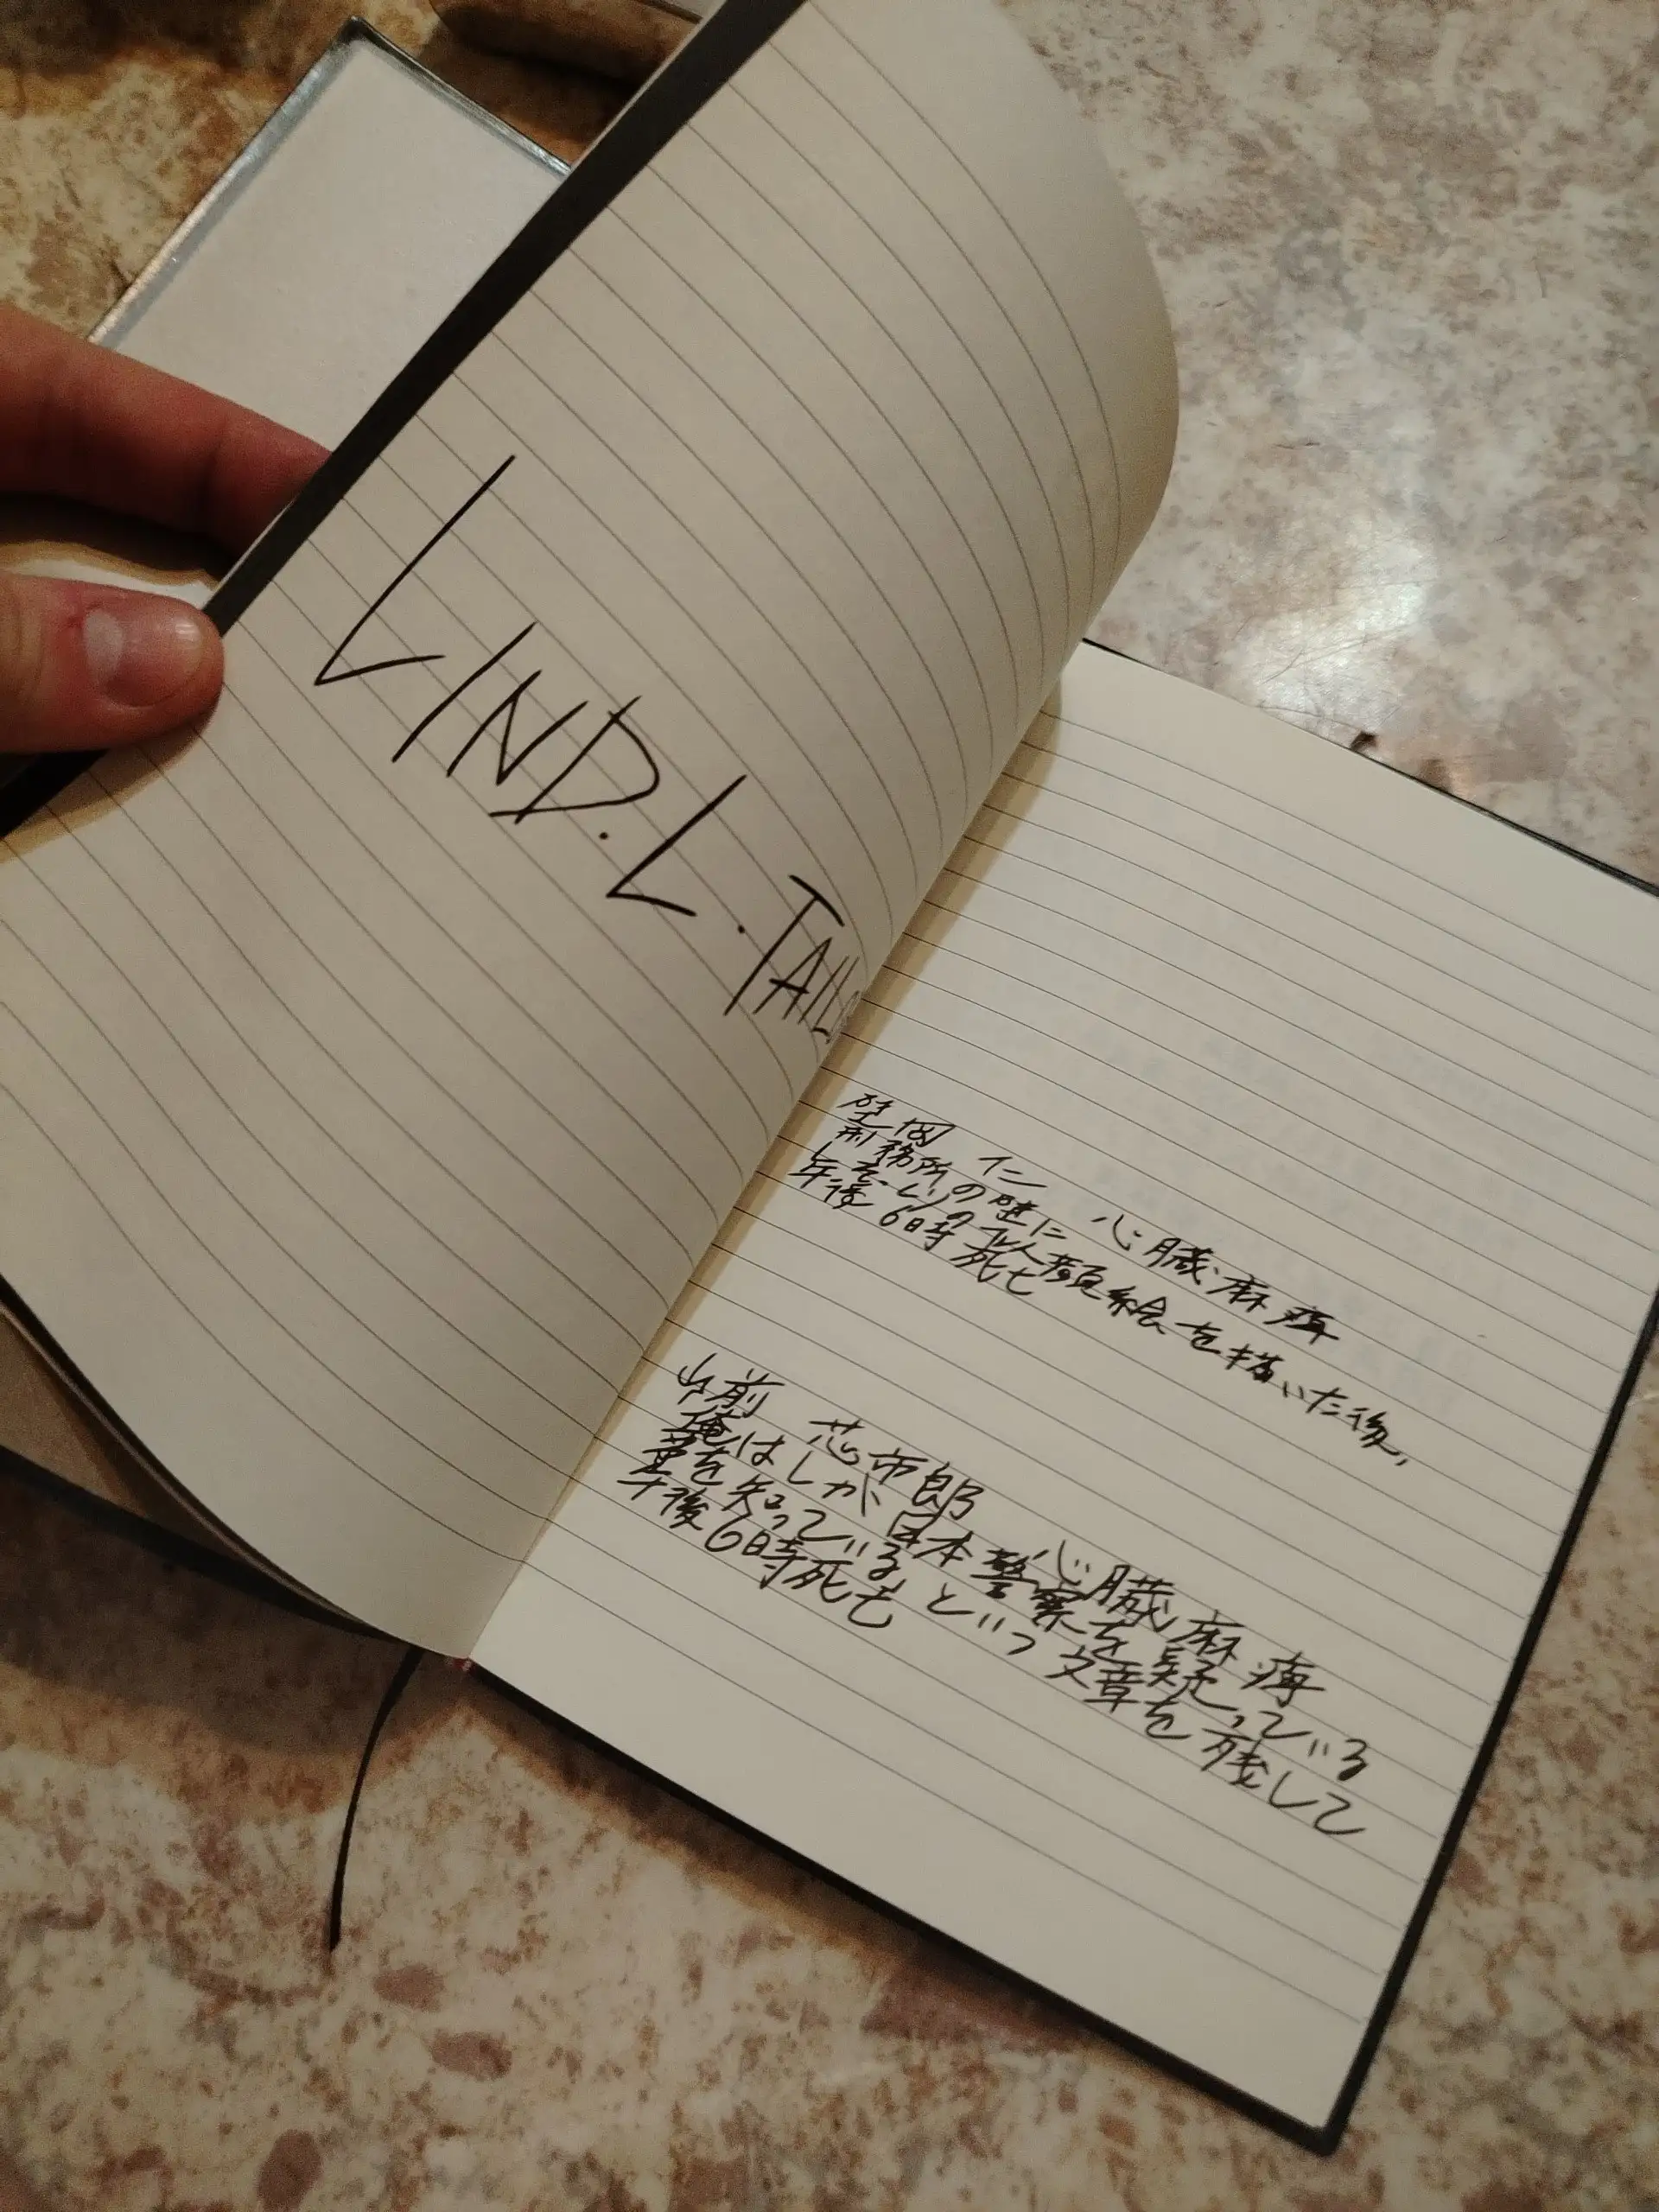 LIND.L.TAIL
岡 仁 心臓麻痺
刑務所の壁に
の似顔絵を描いた後,
午後6時死亡
前 芯市郎 心臓麻痺
俺はしが日本警察を疑っている
事を知っているという文章を残して
午後6時死亡